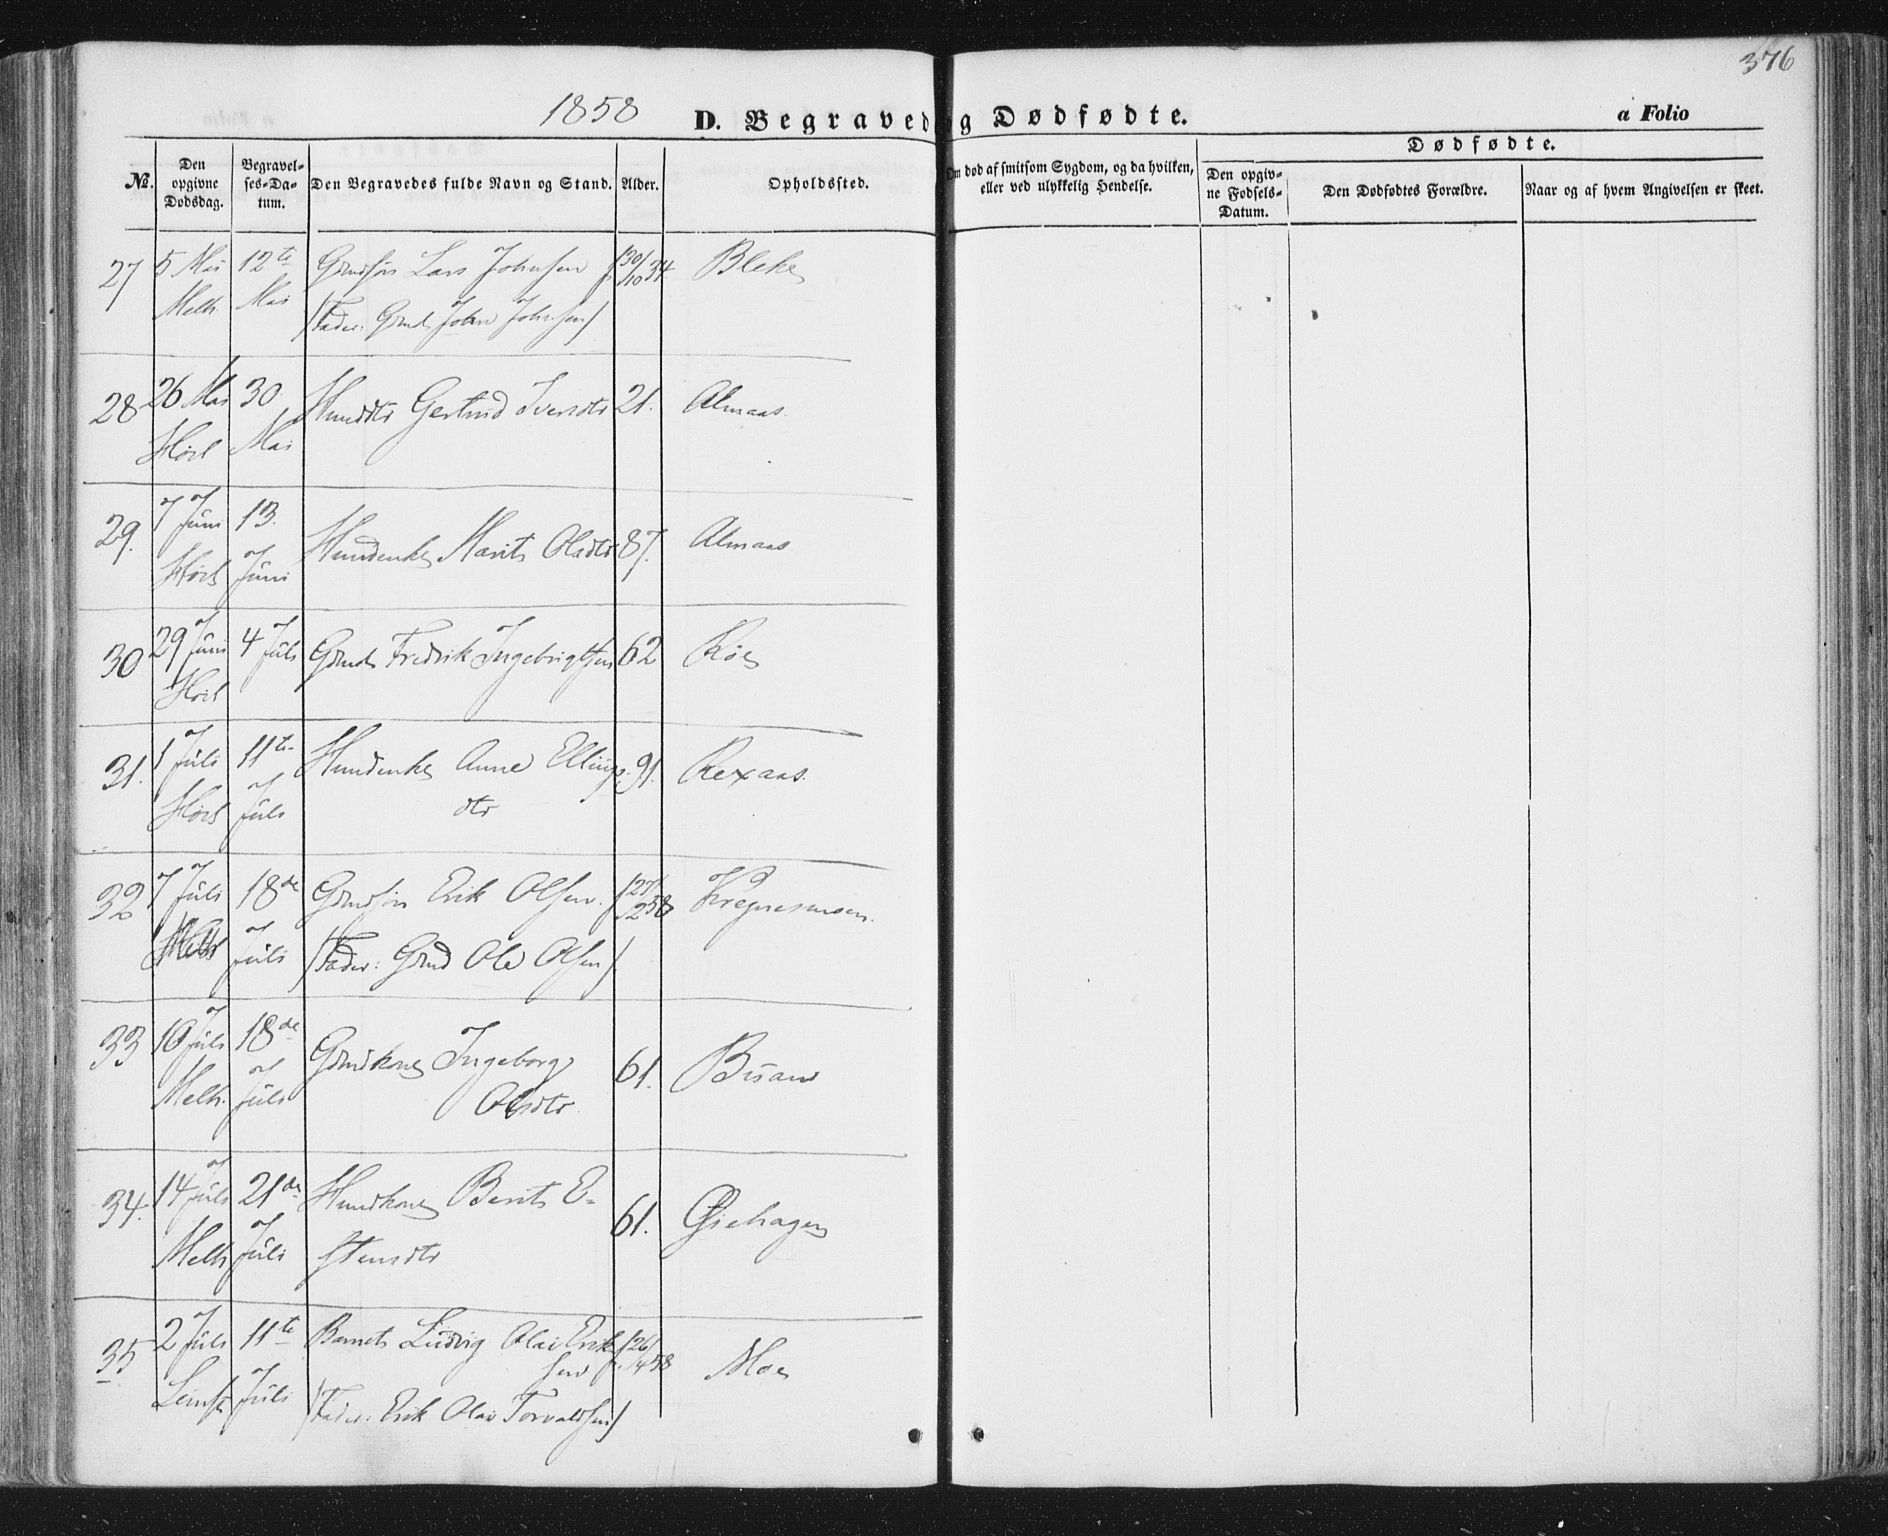 376
1858 D. Begravede og Dødfødte. a Folio
No. Den opgivne Dødsdag. Begravelses-Datum. Den Begravedes fulde Navn og Stand. Alder. Opholdssted. Om død af smitsom Sygdom, og da hvilken, eller ved ulykkelig Hendelse. Dødfødte.
Den opgivne Fødsels-Datum. Den Dødfødtes Forældre. Naar og af hvem Angivelsen er skeet.
27 5 Mai 12te Lars Johnsen f. 30/10 34 Bleke
Melh Mai (Fader: Grmd John Johnsen)
28 26 Mai 30 Gertrud Iversdtr 21. Almaas.
Mai
29. 7 Juni 13. Marit Olsdtr 87. Almaas
Juni
30 29 Juni 4 Juli Grmd Fredrik Ingebrigtsen 62 Røe
31. 1 Juli 11te Anne Ellings- 91. Rexaas.
Juli dtr
32 7 Juli 18de Erik Olsen. f. 27/2 58
Melh Juli (Fader: Grmd Ole Olsen)
33 10 Juli 18de Grmdkone Ingeborg 61.
Melh. Juli Olsdtr.
34. 14 Juli 21de Berit E- 61. Gjehagen
Melh Juli stensdtr
35 2 Juli 11te Barnet Ludvig Olai Erik f. 26/4 58 Moe
sen
Juli (Fader: Erik Olai Torvaldsen)